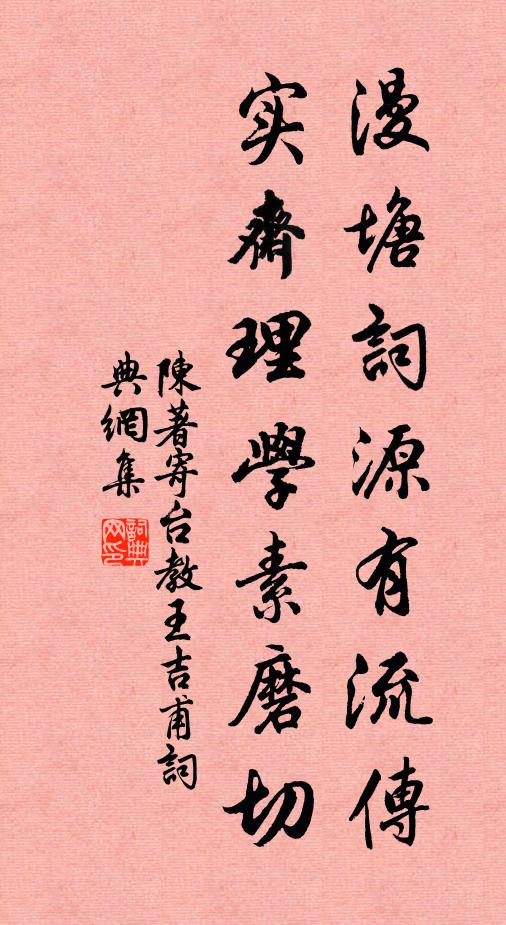 漫塘詞源有流傳
实齋理學素磨切
陳著寄台教王吉甫詞
典網集
詞典網印